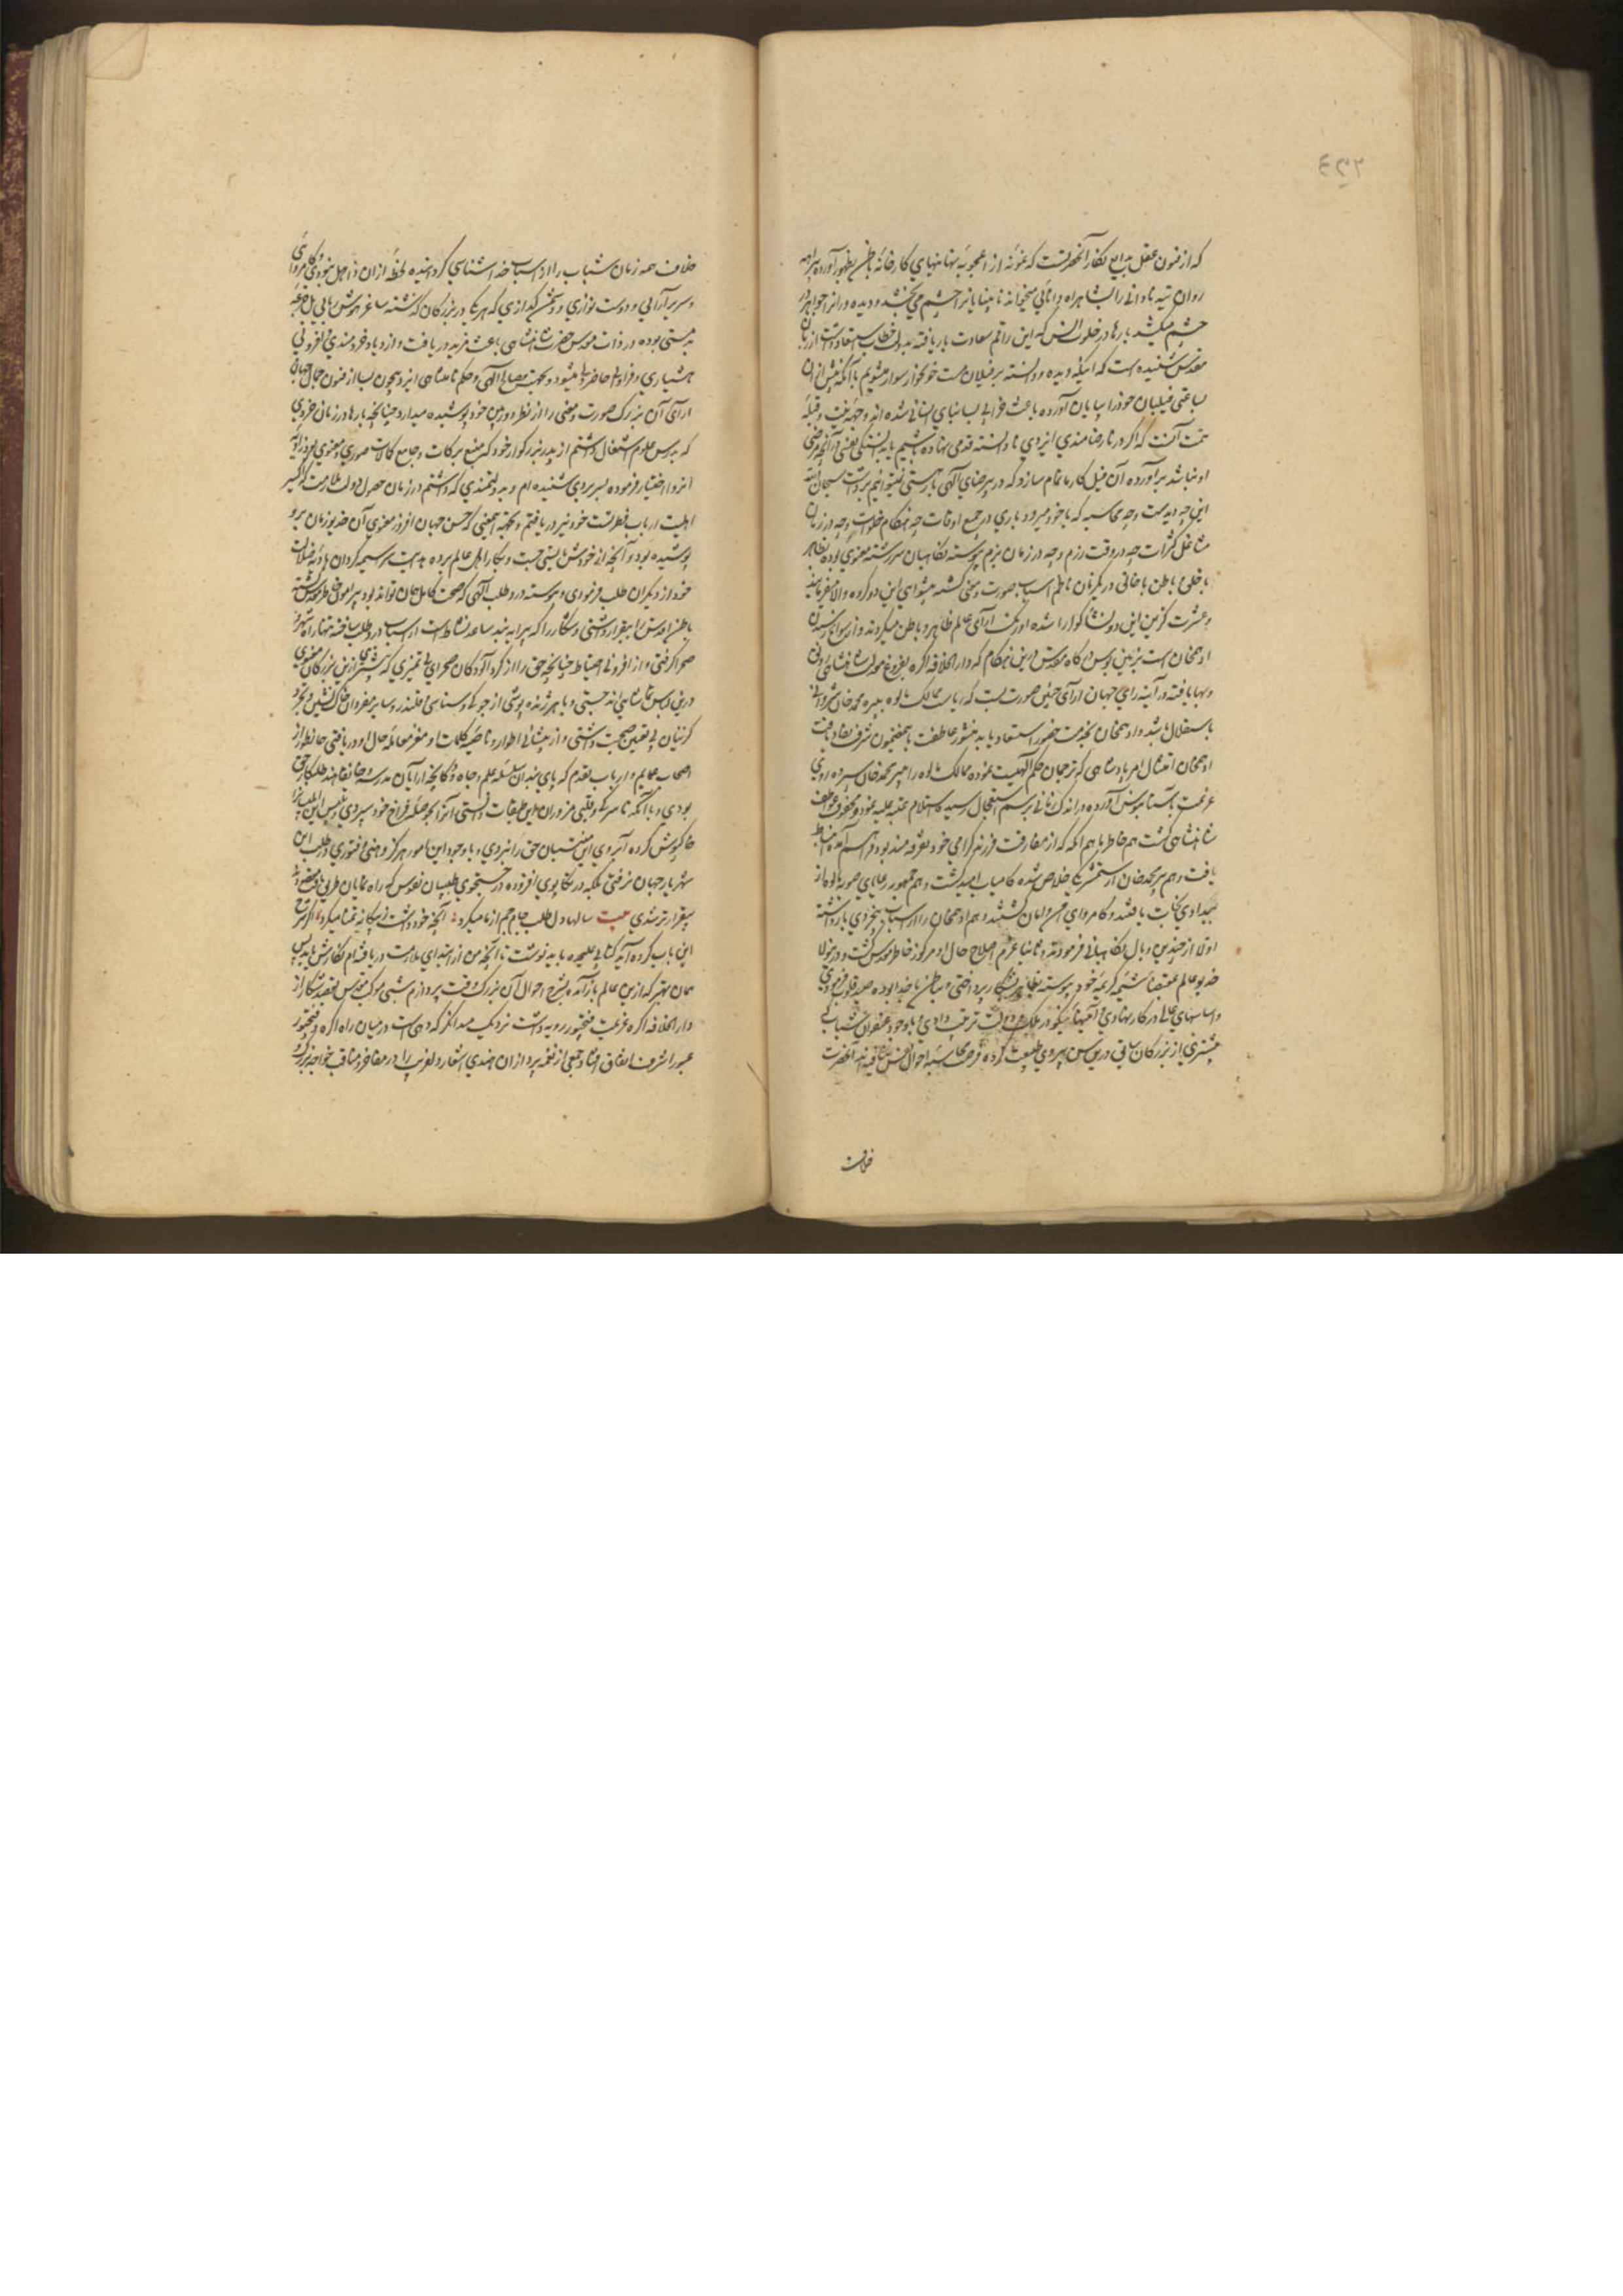 که از فنون عقل بدایع نگار آنحضرتست که نمونه از اعجوبه نهانیهای کارخانه باطن بظهور آورده
روان تیه نادانی را بشاهراه دانایی میخواند نابینایانرا چشم می بخشد و دیده ورانرا جواهر در
چشم میکشد بارها در خلوت انس که این راقم سعادت بار یافته بدولت خطاب استسعاد داشت از زبان
مقدس شنیده است که اینکه دیده و دانسته بر فیلان مست خونخوار سوار میشویم با آنکه پیش ازان
بساعتی فیلبان خود را بپایان آورده باعث خرابی بسا بنای انسانی شده اند وجهه نیت و قبله
همت آنست که اگر در نارضامندی ایزدی نادانسته قدمی نهاده باشیم یا بدانستگی نفسی در آنچه مرضی
او نباشد برآورده آن فیل کار ما تمام سازد که در نارضای الهی بار هستی نمیتوانیم برداشت سبحان الله
این چه دیدست و چه محاسبه که با خود میرود باری در جمیع اوقات چه هنگام خلوت و چه در زمان
مشاغل کثرات چه در وقت رزم و چه در زمان بزم پیوسته نگاهبان سررشته معنوی بوده بظاهر
با خلق و باطن با خالق در یکزمان ناظم اسباب صورت و معنی گشته پیشوای این دو کرده
و عشرت گزین این دو نشأ گوارا شده اورنگ آرای عالم ظاهر و باطن میگردند و از سوانح رسیدن
ادهمخان است بزمین بوس درگاه مقدس درین هنگام که دارالخلافه اگره بفروغ معدلت شاهنشاهی رونق
و بها یافته در آینه رای جهان آرای چنین صورت بست که ریاست ممالک مالوه بپیر محمد خان شروانی
باستقلال باشد و ادهمخان بخدمت حضور استسعاد یابد منشور عاطفت باینمضمون شرف نفاذ یافت
ادهمخان امتثال امر پادشاهی که ترجمان حکم الهیست نموده ممالک مالوه را بپیر محمد خان سپرده روی
عزیمت بآستانبوس آورده در اندک زمانی برسم استعجال رسیده استلام عتبه علیه نموده محفوف عواطف
شاهنشاهی گشت هم خاطر ماهم انکه که از مفارقت فرزند گرامی خود تفرقه مند بود فراهم آمده انبساط
یافت و هم پیر محمد خان از ستمشریکی خلاص شده کامیاب امید گشت و هم جمهور رعایای صوبه مالوه از
بیدادی نجات یافتند و کامروای امن و امان گشتند و هم ادهمخان را از اسباب بیخردی بازداشته
اولا از چندین وبال نگاهبانی فرمودند و ثانیا عزم اصلاح حال او مرکوز خاطر مقدس گشت و در هنولا
خدیو عالم بمقتضای شیمه کریمه خود پیوسته بظاهر بشکار پرداختی و بباطن با خدا بوده صید قلوب فرمودی
و اساسهای عالی در کار بنهادی و آئینهای نیکو در ملک و دولت ترتیب دادی و با وجود عنفوان شباب که
بیشتری از بزرگان سابق درین سن پیروی طبیعت کرده فرصت محاسبه احوال نفس نیافته اند آنحضرت
خلاف
خلاف همه زمان شباب را از اسباب خدا شناسی گردانیده لحظه ازان ذاهل نبودی و کامروایی
و سریر آرایی و دوست نوازی و دشمن گدازی که هر یکی در بزرگان گذشته ساغر هوش ربایی بل جرعه
بدمستی بوده در ذات مقدس حضرت شاهنشاهی باعث مزید دریافت و ازدیاد خردمندی و افزونی
هشیاری و فراوانی حاضر دلی میشود و بحکمت مصالح الهی و حکم نامتناهی ایزد بیچون بسا از فنون جمال جهان
آرای آن بزرگ صورت و معنی را از نظر دوربین خود پوشیده میدارد چنانچه بارها در زمان خردی
که بدرس علوم اشتغال داشتم از پدر بزرگوار خود که منبع برکات و جامع کمالات صوری و معنوی بود زاویه
انزوا اختیار فرموده بسر بردی شنیده ام و به دانشمندی که داشتم در زمان حصول دولت ملازمت که اکسیر
اهلیت ارباب فطرتست خود نیز دریافتم و بجهت همین که حسن جهان افروز معنوی آن خدیو زمان برو
پوشیده بود و آنچه از خودش بایستی جست و بکار اهل عالم برده هدایت سراسیمه گردان بادیه ضلالت
خود از دیگران طلب فرمودی و پیوسته در درد طلب الهی که صحت کامل همان تواند بود پیرامون خاطر مقدس گشته
باطن اقدس را بیقرار داشتی و شکار را که پیرایه بند ساعد نشاط است از اسباب درد طلب ساخته تنها راه
صحرا گرفتی و از افزونی احتیاط چنانچه حق را از گرد آلودگان صحرای بی تمیزی که بیشتری ازین بزرگان معنوی
درین لباس تماشایی اند جستی و با هر ژنده پوشی از جوکی و سناسی و قلندر و سایر مفردان خاک نشین و تجرد
گزینان بی تعین صحبت داشتی و از پیشانی اطوار و ناصیه کلمات او مغز معامله حال او دریافتی همانطور از
اصحاب عمایم و ارباب تقدم که پای بندان سلسله علم و جاه و دکانچه آرایان مدرسه و خانقاهند طلبکار حق
بودی و با آنکه ناسرگی و قلبی مزوران این طبقات دانستی آنرا بحوصله فراخ خود سپردی و پس این طلب را
خاکپوش کرده آبروی این منتسبان حق را نبردی و با وجود این امور هرگز وهنی و فتوری در طلب این
شهریار جهان نرفتی بلکه در تکاپوی افزوده در جستجوی طبیبان نفوس که راه نمایان طریق مقصودند
بیقرارتر شدی بیت سالها دل طلب جام جم از ما میکرد آنچه خود داشت ز بیگانه تمنا میکرد اگر شرح
این باب کرده آید کتابی علیحده باید نوشت تا آنچه من از ابتدای ملازمت دریافته ام نگارش یابد پس
همان بهتر که ازین عالم باز آمده بشرح احوال آن بزرگ وقت پردازم شبی موکب مقدس بقصد شکار از
دارالخلافه اگره عزیمت فتحپور رو به دشت نزدیک میداکر که دهی است درمیان راه اگره و فتحپور
عبور اشرف اتفاق افتاد جمعی از نغمه پردازان هندی اشعار دلفریب را در مفاخر و مناقب خواجه بزرگ